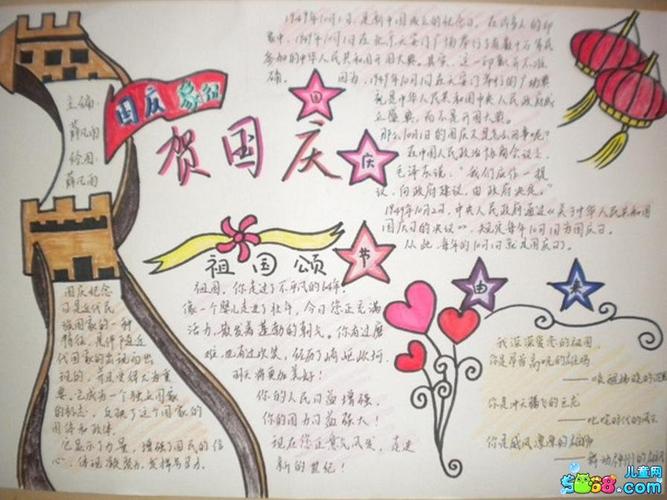 1949年10月1日,是新中国成立的纪念日。在许多人的印
象中,1949年10月1日在北京天安门广场举行了有数十万军民
参加的中华人民共和国开国大典。其实,这一印象并不准
确。因为,1949年10月1日在天安门举行的
是中华人民共和国中央人民政府成
立盛典,而不是开国大典。
那么10月1日的国庆又是怎么回事呢?
在中国人民政治协商会议上,
毛泽东说:“我们应作一提
议,向政府建议,由政府决定。”
1949年10月2日,中央人民政府通过《关于中华人民共和国
国庆日的决议》,规定每年10月1日为国庆日。
从此,每年的10月1日就是国庆日。
主编:
绘图:
国庆
贺国庆
国
庆
节
由
来
祖国颂
祖国,你走过了不平凡的
像一个婴儿走进了壮年,今日您正充满
活力,散发着蓬勃的朝气。你有过磨
难,也有过欢笑,经历了
明天将更加美好!
你的人民日益增强,
你的国力日益强大!
现在您正意气风发,走进
新的世纪!
国庆纪念
日是近代民
族国家的一种
特征,是伴随近
代国家的出现而出
现的,并且变得尤为重
要。它成为一个独立国家
的标志,反映了这个国家的
国体和政体。
它显示了力量,增强了国民的信
心,体现凝聚力,发挥号召力。
我深深爱恋的祖国,
你是昂首高吭的雄鸡
——唤醒拂晓的沉默
你是冲天腾飞的巨龙
——叱咤时代的风云
你是威风凛凛的雄狮
——舞动神州的雄风
5068.com
儿童网